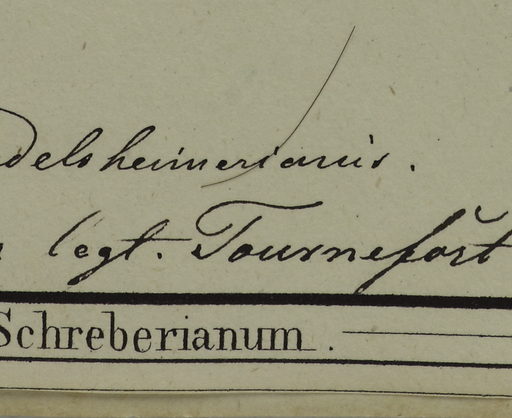 delsheimerianis.
legt. Tournefort
Schreberianum.